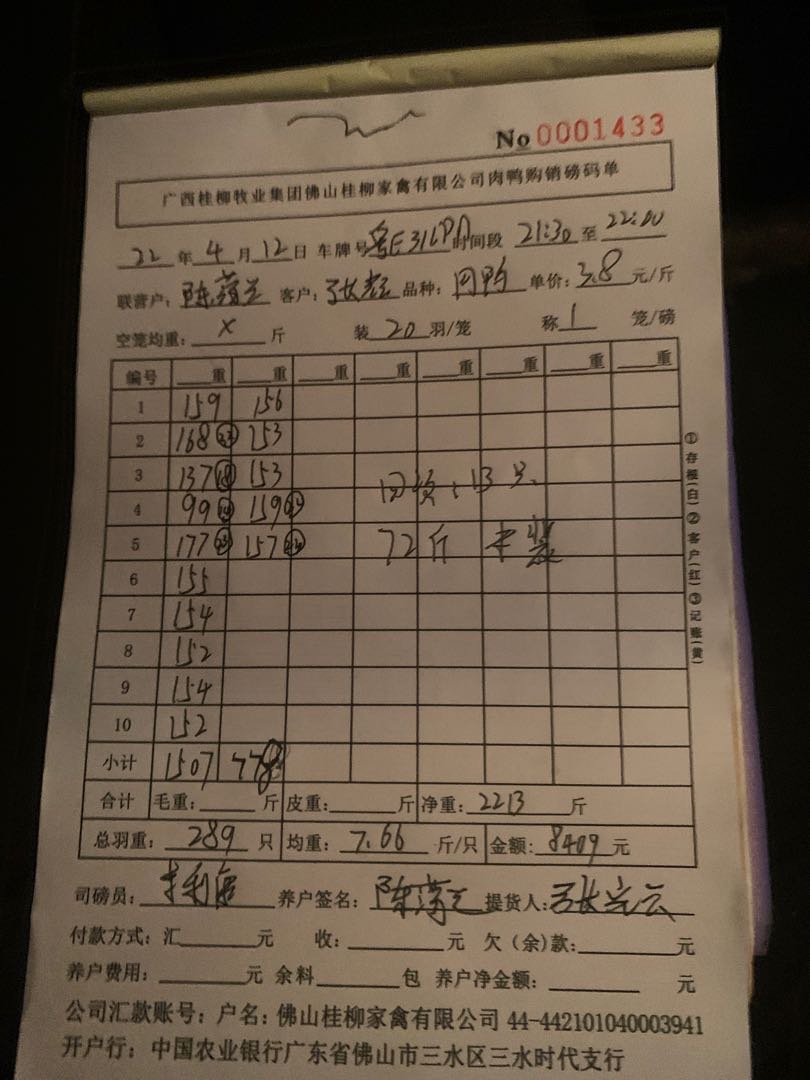 No 0001433
广西桂柳牧业集团佛山桂柳家禽有限公司肉鸭购销磅码单
22 年 4 月 12 日 车牌号 粤E31LPA 时间段 21:30 至 22:00
联营户： 陈 客户： 张 品种： 肉鸭 单价： 3.8 元/斤
空笼均重： X 斤 装 20 羽/笼 称 1 笼/磅
编号 重 重 重 重 重 重 重 重
1 159 156
2 168 153
3 137 153
4 99 159 回货：13只
5 177 157 72斤 卡装
6 155
7 154
8 152
9 154
10 152
小计 1507 778
合计 毛重： 斤 皮重： 斤 净重： 2213 斤
总羽重： 289 只 均重： 7.66 斤/只 金额: 8409 元
司磅员： 养户签名： 陈 提货人： 张云
付款方式：汇 元 收： 元 欠（余）款： 元
养户费用： 元 余料 包 养户净金额： 元
公司汇款账号：户名：佛山桂柳家禽有限公司 44-442101040003941
开户行：中国农业银行广东省佛山市三水区三水时代支行
①存根(白)②客户(红)③记账(黄)